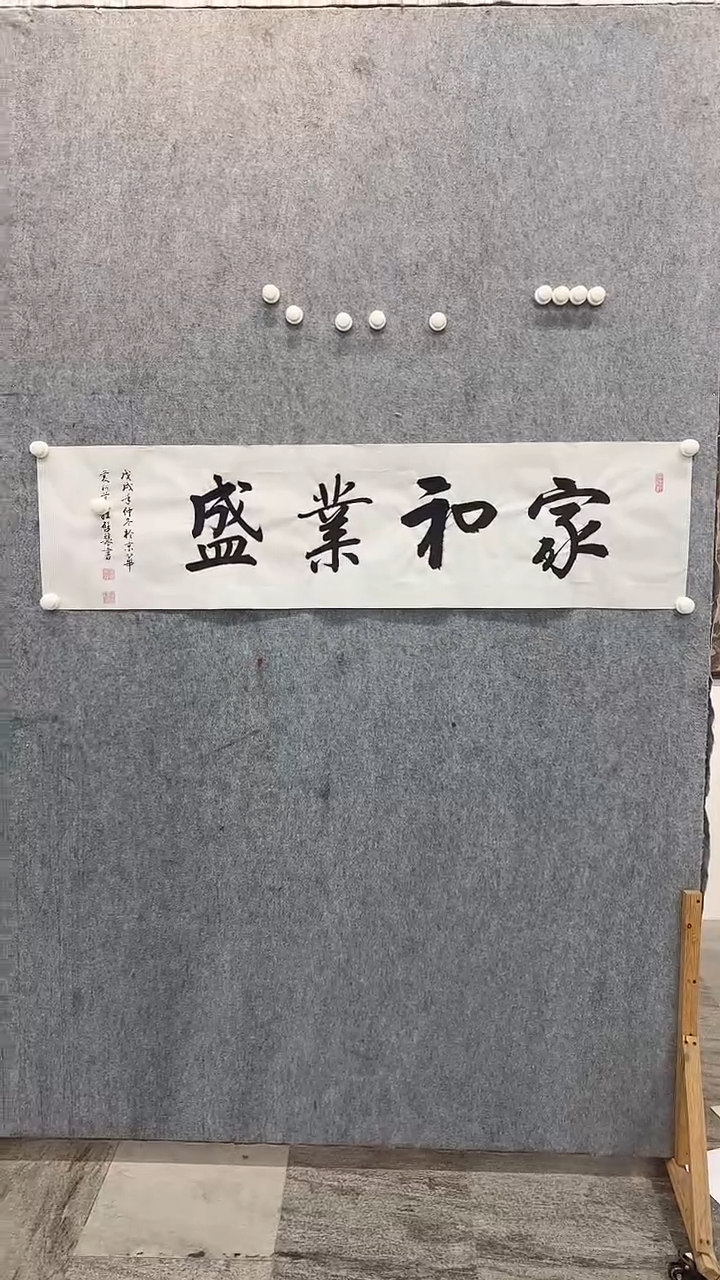 家和業盛
戊戌年仲冬於京華
書